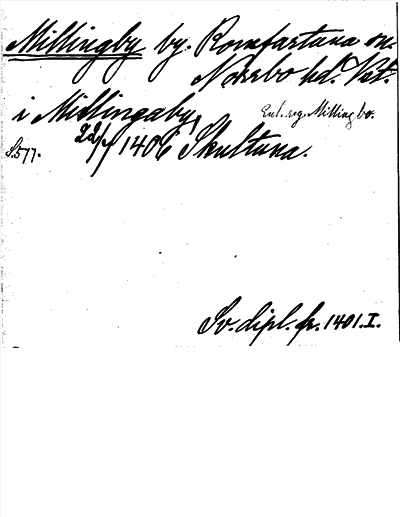 Millingby by. Romfartuna sn.
Norrbo hd. Vst.
i Millingaby,
Enl. reg. Milling bo.
S. 577. 22/7 1406 Skultuna.
Sv. dipl. fr. 1401. I.